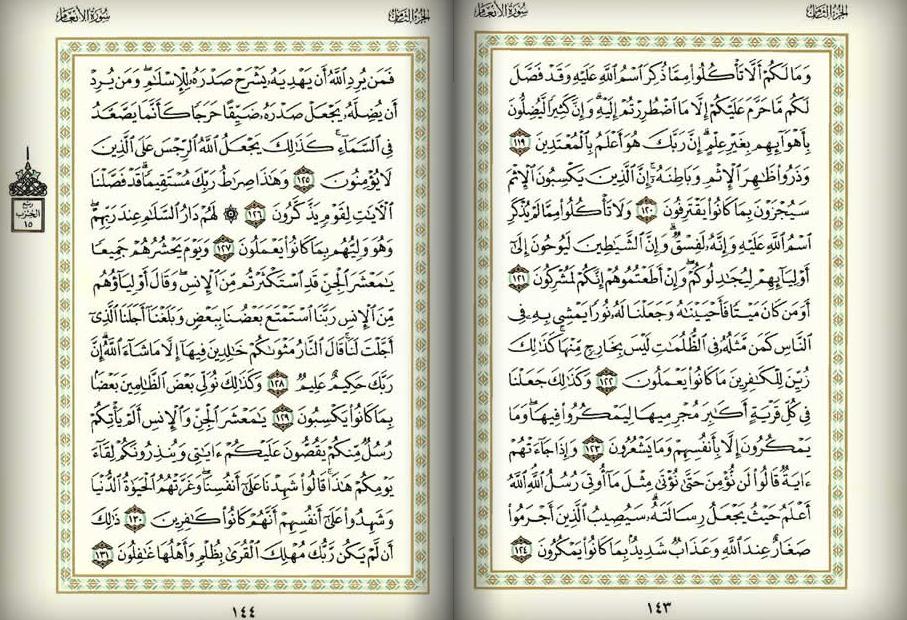 الجزء الثامن
سورة الأنعام
وَمَا لَكُمْ أَلَّا تَأْكُلُوا۟ مِمَّا ذُكِرَ ٱسْمُ ٱللَّهِ عَلَيْهِ وَقَدْ فَصَّلَ
لَكُم مَّا حَرَّمَ عَلَيْكُمْ إِلَّا مَا ٱضْطُرِرْتُمْ إِلَيْهِ ۗ وَإِنَّ كَثِيرًا لَّيُضِلُّونَ
بِأَهْوَآئِهِم بِغَيْرِ عِلْمٍ ۗ إِنَّ رَبَّكَ هُوَ أَعْلَمُ بِٱلْمُعْتَدِينَ ١١٩
وَذَرُوا۟ ظَٰهِرَ ٱلْإِثْمِ وَبَاطِنَهُۥٓ ۚ إِنَّ ٱلَّذِينَ يَكْسِبُونَ ٱلْإِثْمَ
سَيُجْزَوْنَ بِمَا كَانُوا۟ يَقْتَرِفُونَ ١٢٠ وَلَا تَأْكُلُوا۟ مِمَّا لَمْ يُذْكَرِ
ٱسْمُ ٱللَّهِ عَلَيْهِ وَإِنَّهُۥ لَفِسْقٌ ۗ وَإِنَّ ٱلشَّيَٰطِينَ لَيُوحُونَ إِلَىٰٓ
أَوْلِيَآئِهِمْ لِيُجَٰدِلُوكُمْ ۖ وَإِنْ أَطَعْتُمُوهُمْ إِنَّكُمْ لَمُشْرِكُونَ ١٢١
أَوَمَن كَانَ مَيْتًا فَأَحْيَيْنَٰهُ وَجَعَلْنَا لَهُۥ نُورًا يَمْشِى بِهِۦ فِى
ٱلنَّاسِ كَمَن مَّثَلُهُۥ فِى ٱلظُّلُمَٰتِ لَيْسَ بِخَارِجٍ مِّنْهَا ۚ كَذَٰلِكَ
زُيِّنَ لِلْكَٰفِرِينَ مَا كَانُوا۟ يَعْمَلُونَ ١٢٢ وَكَذَٰلِكَ جَعَلْنَا
فِى كُلِّ قَرْيَةٍ أَكَٰبِرَ مُجْرِمِيهَا لِيَمْكُرُوا۟ فِيهَا ۖ وَمَا
يَمْكُرُونَ إِلَّا بِأَنفُسِهِمْ وَمَا يَشْعُرُونَ ١٢٣ وَإِذَا جَآءَتْهُمْ
ءَايَةٌ قَالُوا۟ لَن نُّؤْمِنَ حَتَّىٰ نُؤْتَىٰ مِثْلَ مَآ أُوتِىَ رُسُلُ ٱللَّهِ ۘ ٱللَّهُ
أَعْلَمُ حَيْثُ يَجْعَلُ رِسَالَتَهُۥ ۗ سَيُصِيبُ ٱلَّذِينَ أَجْرَمُوا۟
صَغَارٌ عِندَ ٱللَّهِ وَعَذَابٌ شَدِيدٌۢ بِمَا كَانُوا۟ يَمْكُرُونَ ١٢٤
١٤٣
الجزء الثامن
سورة الأنعام
فَمَن يُرِدِ ٱللَّهُ أَن يَهْدِيَهُۥ يَشْرَحْ صَدْرَهُۥ لِلْإِسْلَٰمِ ۖ وَمَن يُرِدْ
أَن يُضِلَّهُۥ يَجْعَلْ صَدْرَهُۥ ضَيِّقًا حَرَجًا كَأَنَّمَا يَصَّعَّدُ
فِى ٱلسَّمَآءِ ۚ كَذَٰلِكَ يَجْعَلُ ٱللَّهُ ٱلرِّجْسَ عَلَى ٱلَّذِينَ
لَا يُؤْمِنُونَ ١٢٥ وَهَٰذَا صِرَٰطُ رَبِّكَ مُسْتَقِيمًا ۗ قَدْ فَصَّلْنَا
ٱلْءَايَٰتِ لِقَوْمٍ يَذَّكَّرُونَ ١٢٦ ۞ لَهُمْ دَارُ ٱلسَّلَٰمِ عِندَ رَبِّهِمْ ۖ
وَهُوَ وَلِيُّهُم بِمَا كَانُوا۟ يَعْمَلُونَ ١٢٧ وَيَوْمَ يَحْشُرُهُمْ جَمِيعًا
يَٰمَعْشَرَ ٱلْجِنِّ قَدِ ٱسْتَكْثَرْتُم مِّنَ ٱلْإِنسِ ۖ وَقَالَ أَوْلِيَآؤُهُم
مِّنَ ٱلْإِنسِ رَبَّنَا ٱسْتَمْتَعَ بَعْضُنَا بِبَعْضٍ وَبَلَغْنَآ أَجَلَنَا ٱلَّذِىٓ
أَجَّلْتَ لَنَا ۚ قَالَ ٱلنَّارُ مَثْوَىٰكُمْ خَٰلِدِينَ فِيهَآ إِلَّا مَا شَآءَ ٱللَّهُ ۗ إِنَّ
رَبَّكَ حَكِيمٌ عَلِيمٌ ١٢٨ وَكَذَٰلِكَ نُوَلِّى بَعْضَ ٱلظَّٰلِمِينَ بَعْضًۢا
بِمَا كَانُوا۟ يَكْسِبُونَ ١٢٩ يَٰمَعْشَرَ ٱلْجِنِّ وَٱلْإِنسِ أَلَمْ يَأْتِكُمْ
رُسُلٌ مِّنكُمْ يَقُصُّونَ عَلَيْكُمْ ءَايَٰتِى وَيُنذِرُونَكُمْ لِقَآءَ
يَوْمِكُمْ هَٰذَا ۚ قَالُوا۟ شَهِدْنَا عَلَىٰٓ أَنفُسِنَا ۖ وَغَرَّتْهُمُ ٱلْحَيَوٰةُ ٱلدُّنْيَا
وَشَهِدُوا۟ عَلَىٰٓ أَنفُسِهِمْ أَنَّهُمْ كَانُوا۟ كَٰفِرِينَ ١٣٠ ذَٰلِكَ
أَن لَّمْ يَكُن رَّبُّكَ مُهْلِكَ ٱلْقُرَىٰ بِظُلْمٍ وَأَهْلُهَا غَٰفِلُونَ ١٣١
ربع
الحزب
١٥
١٤٤